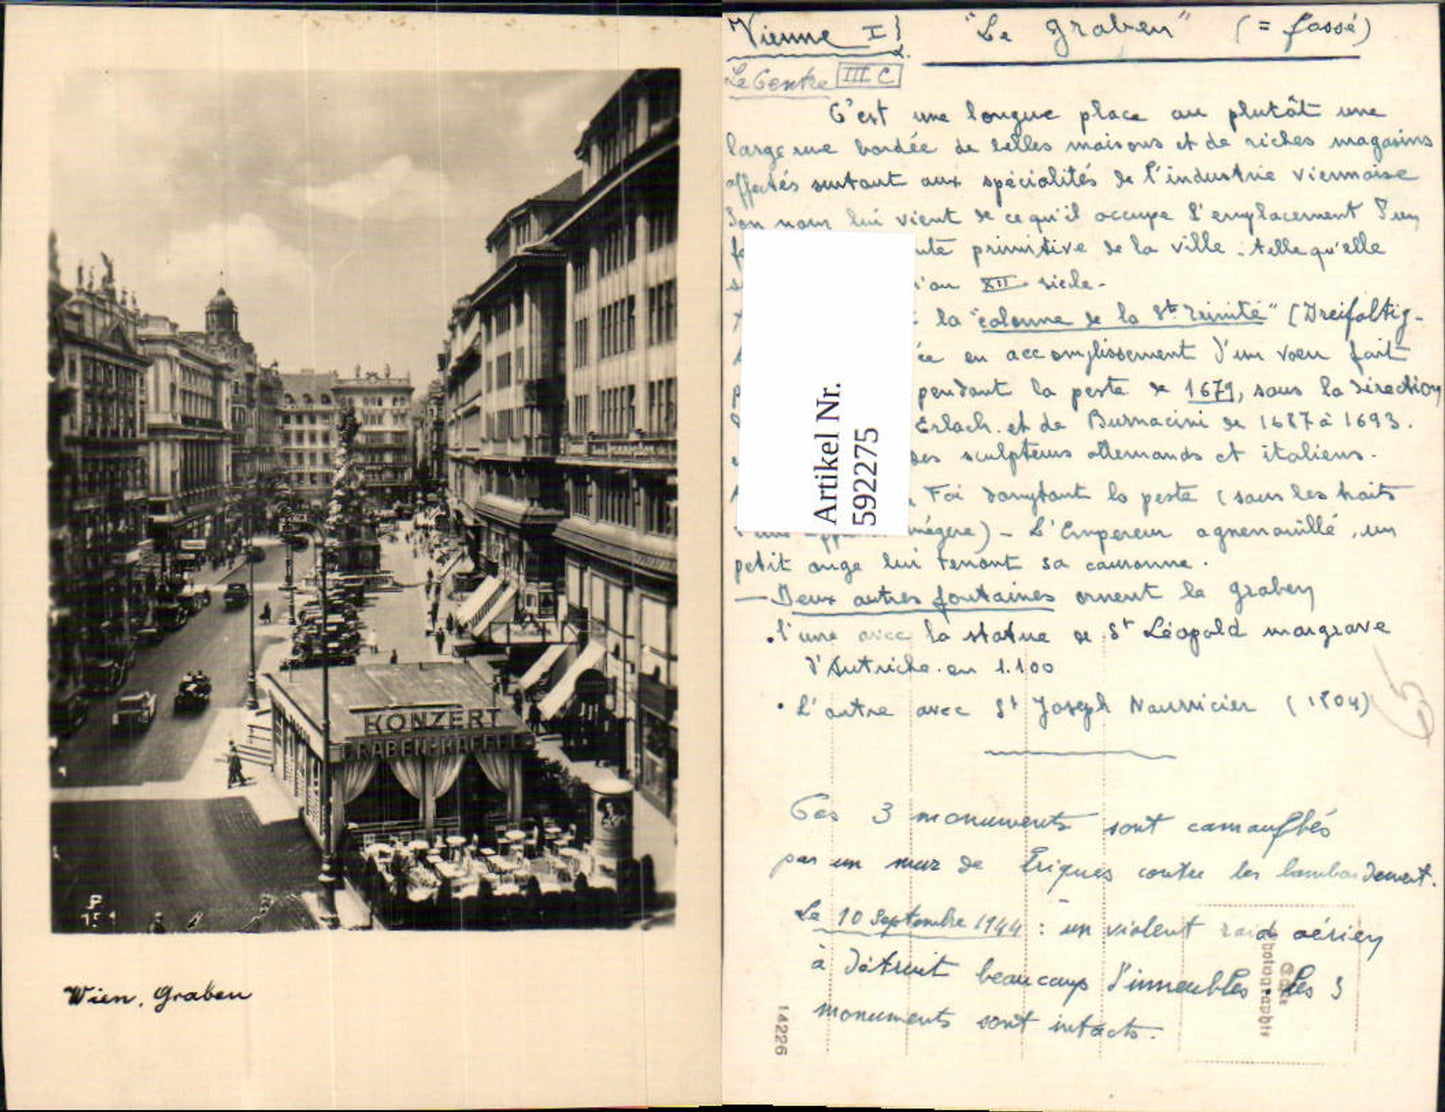 KONZERT
GRABEN-KAFFEE
P
151
Wien, Graben
Vienne I "Le Graben" (= fossé)
Le Centre III C
C'est une longue place ou plutôt une
large rue bordée de belles maisons et de riches magasins
affectés surtout aux spécialités de l'industrie viennoise
Son nom lui vient de ce qu'il occupe l'emplacement d'un
primitive de la ville. telle qu'elle
XII siècle-
la "colonne de la St Trinité" [Dreifaltig-
en accomplissement d'un voeu fait
pendant la peste de 1679, sous la direction
Erlach. et de Burnacini de 1687 à 1693.
des sculpteurs allemands et italiens.
Foi domptant la peste (sous les traits
mégère) - L'Empereur agenouillé, un
petit ange lui tenant sa couronne.
- Deux autres fontaines ornent le Graben
• l'une avec la statue de St Léopold margrave
d'Autriche en 1.100
• L'autre avec St Joseph Nourricier (1804)
65
Ces 3 monuments sont camouflés
par un mur de briques contre les bombardement.
Le 10 Septembre 1944 : un violent raid aérien
à détruit beaucoup d'immeubles. Les 3
monuments sont intacts.
Artikel Nr.
592275
14226